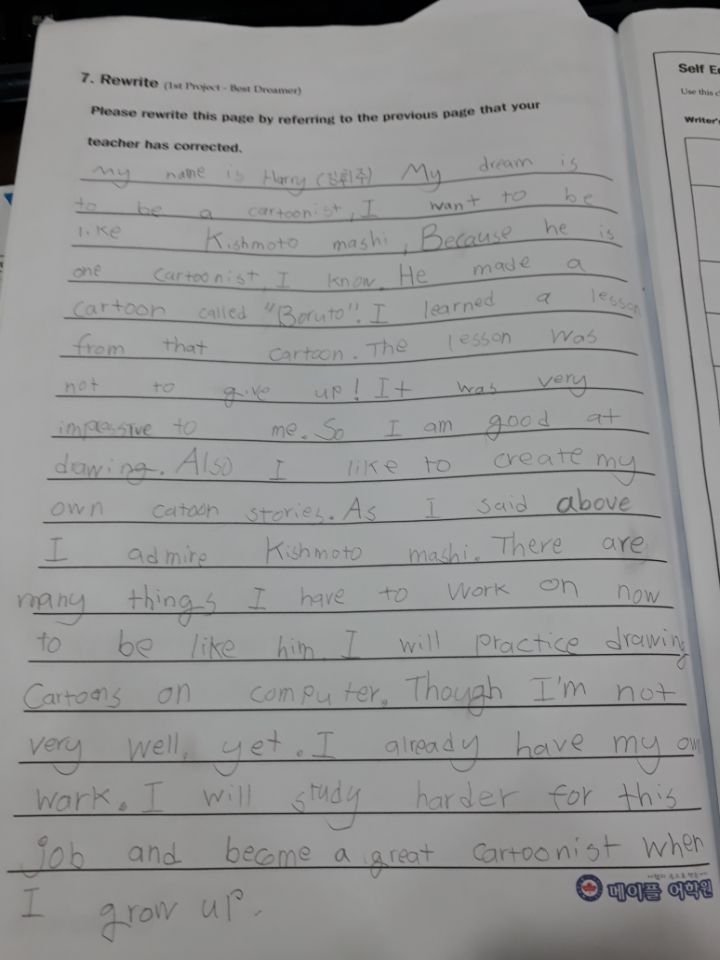 7. Rewrite (1st Project - Best Dreamer)
Please rewrite this page by referring to the previous page that your
teacher has corrected.
My name is Harry My dream is
to be a cartoonist, I want to be
like Kishmoto mashi, Because he is
one cartoonist I know. He made a
cartoon called "Boruto". I learned a lesson
from that cartoon. The lesson was
not to give up! It was very
impassive to me. So I am good at
drawing. Also I like to create my
own catoon stories. As I said above
I admire Kishmoto mashi. There are
many things I have to work on now
to be like him. I will practice drawing
Cartoons on computer. Though I'm not
very well, yet. I already have my own
work. I will study harder for this
job and become a great cartoonist when
I grow up.
메이플 어학원
Self
Use this
Writer's